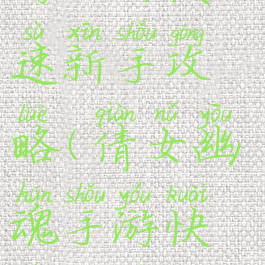 sù xīn shǒu gōng
速新手攻
lüè qiàn nǚ yōu
略(倩女幽
hún shǒu yóu kuài
魂手游快